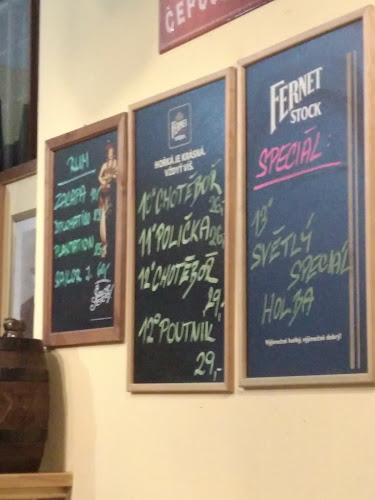 RUM
ZACAPA
DIPLOMATICO
PLANTATION
SAILOR J.
FERNET
STOCK
HOŘKÁ JE KRÁSNÁ.
VŽDYŤ VÍŠ.
10° CHOTĚBOŘ
26,-
11° POLIČKA
26,-
12° CHOTĚBOŘ
29,-
12° POUTNIK
29,-
FERNET
STOCK
SPECIÁL:
13°
SVĚTLÝ
SPECIÁL
HOLBA
Výjimečně hořký, výjimečně dobrý!